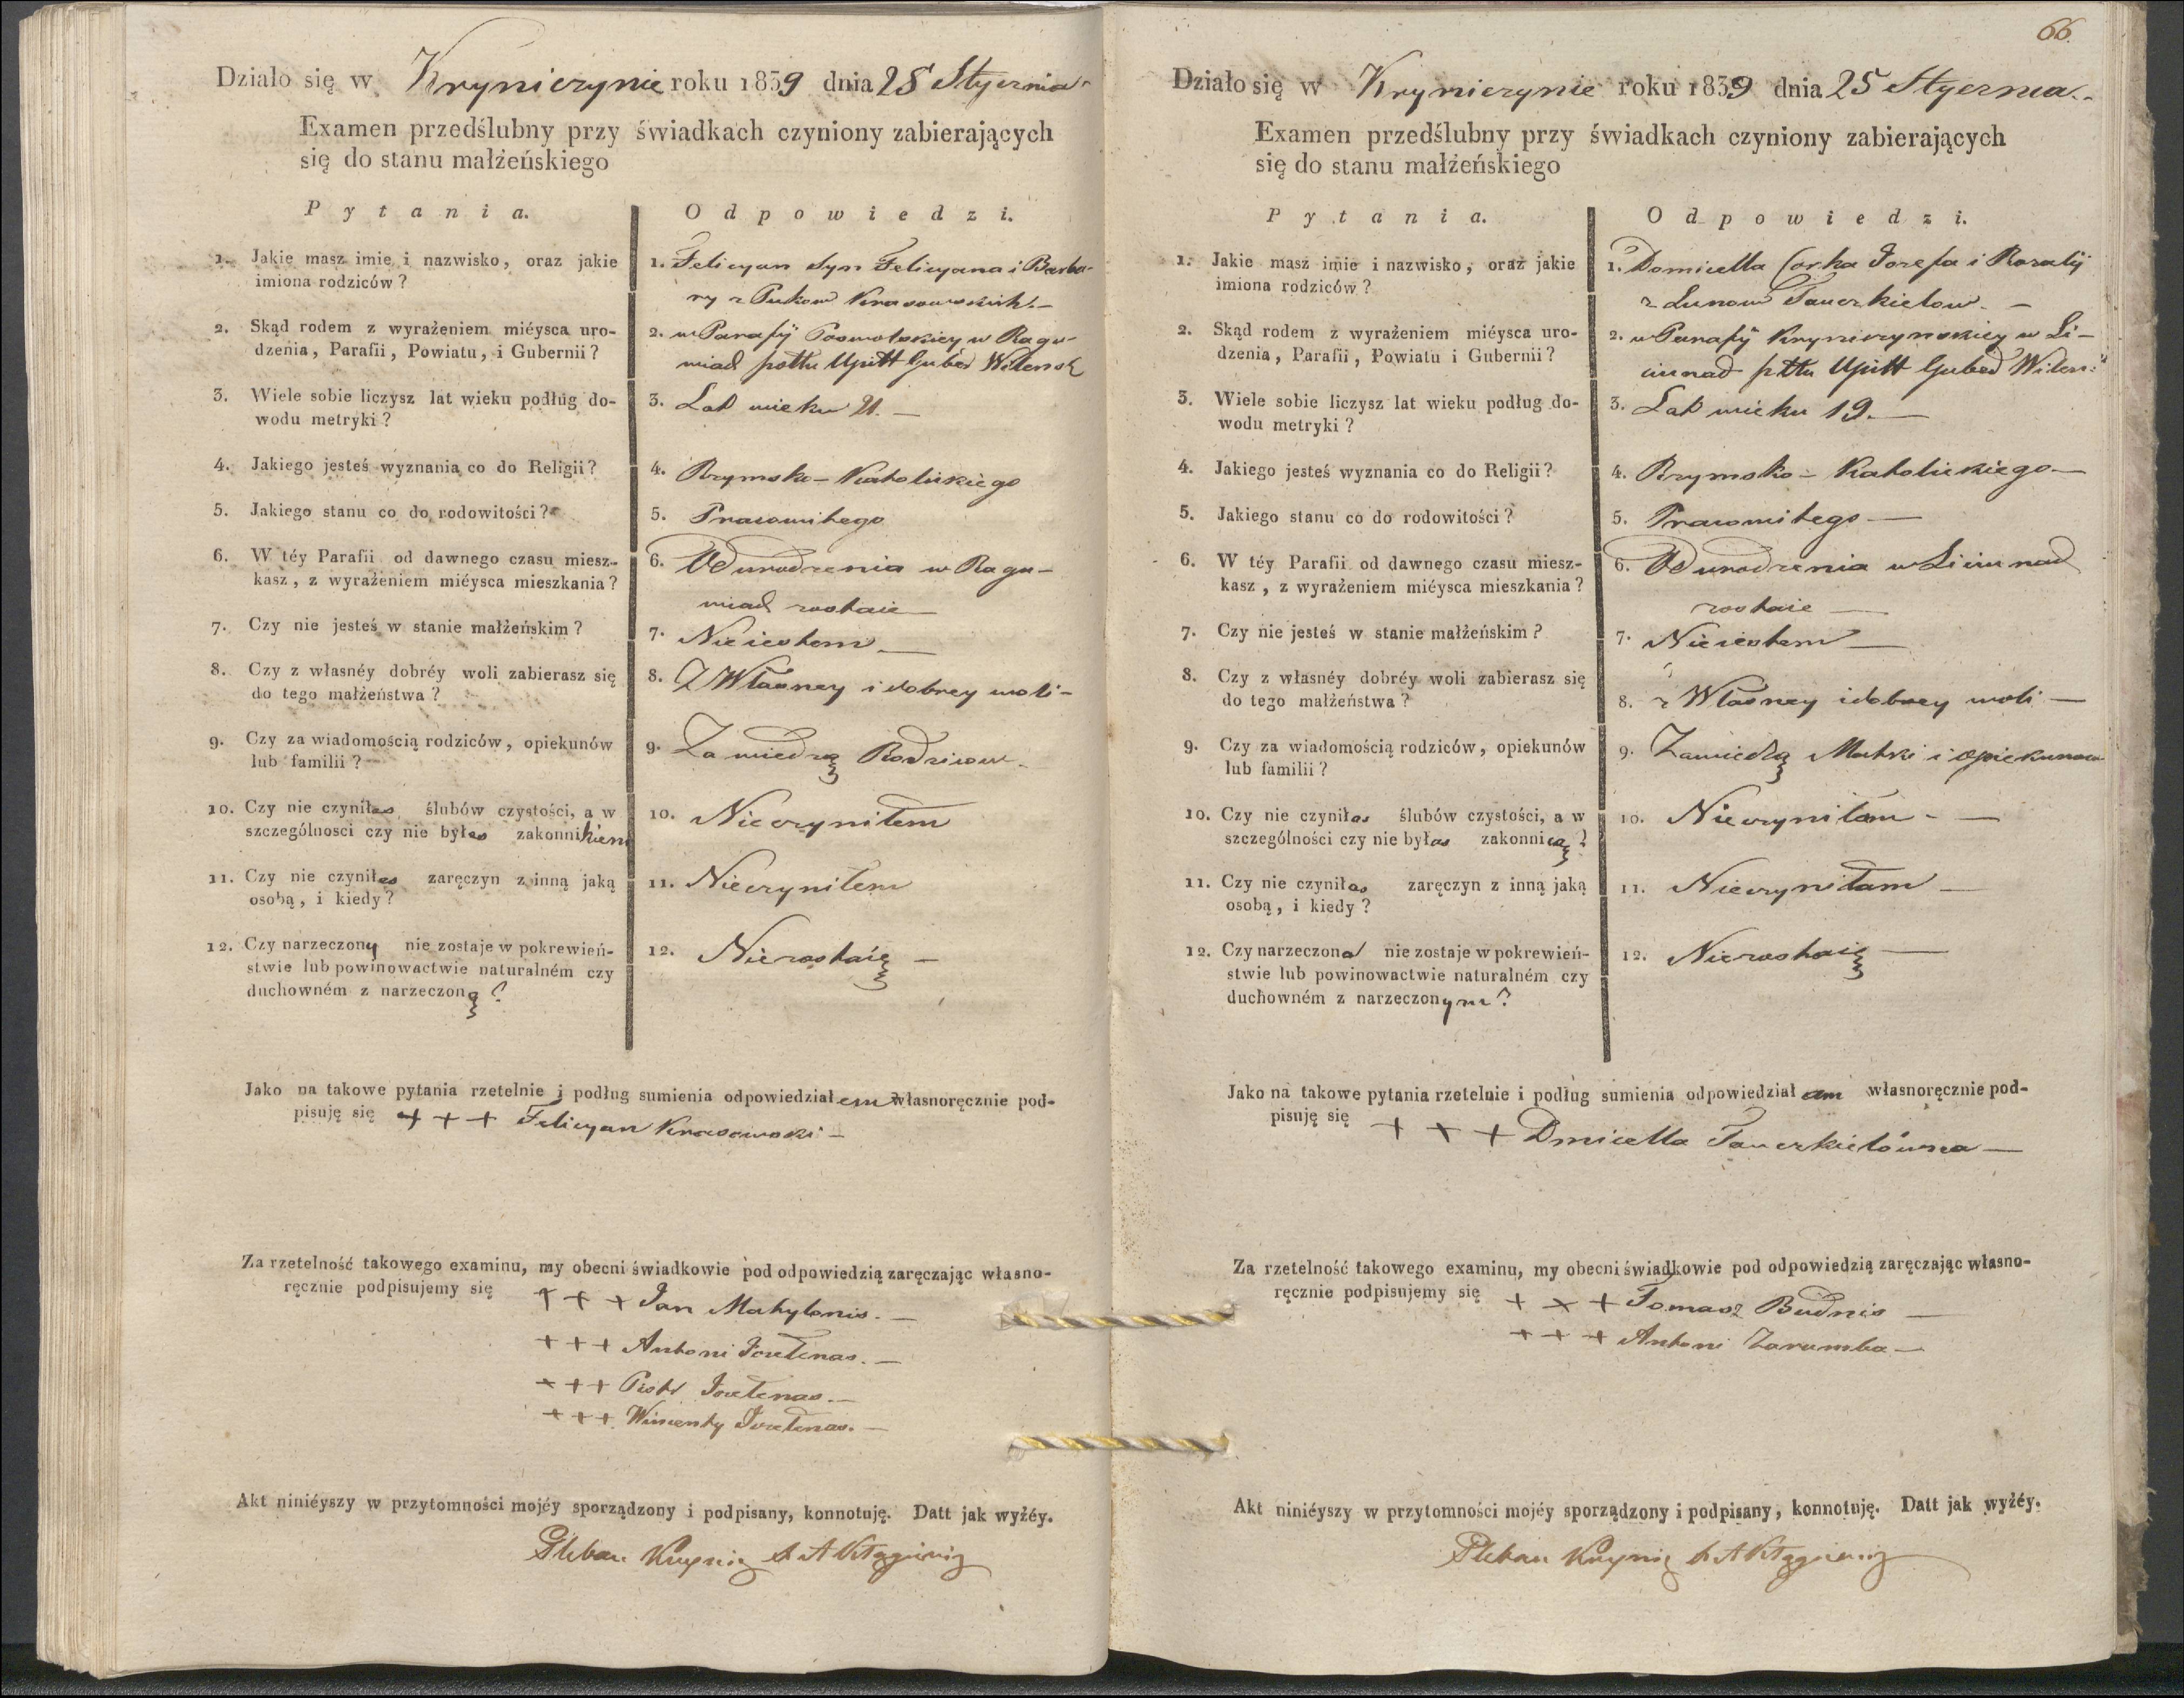 Działo się w Kryniczynie roku 1839 dnia 25 Stycznia
Examen przedślubny przy świadkach czyniony zabierających
się do stanu małżeńskiego
Pytania.
Odpowiedzi.
1. Jakie masz imie i nazwisko, oraz jakie
imiona rodziców?
1. Felicyan Syn Felicyana i Barba-
ry z Pukow Krasowskich. –
2. Skąd rodem z wyrażeniem miéysca uro-
dzenia, Parafii, Powiatu, i Gubernii?
2. w Parafij w Ragu-
miad pottu Upitt Guber Wilensk
3. Wiele sobie liczysz lat wieku podług do-
wodu metryki?
3. Lat wieku 21. –
4. Jakiego jesteś wyznania co do Religii?
4. Rzymsko – Katolickiego
5. Jakiego stanu co do rodowitości?
5. Pracowitego
6. W téy Parafii od dawnego czasu miesz-
kasz, z wyrażeniem miéysca mieszkania?
6. Od urodzenia w Ragu-
miad zostaie –
7. Czy nie jesteś w stanie małżeńskim?
7. Nie iestem –
8. Czy z własnéy dobréy woli zabierasz się
do tego małżeństwa?
8. Z Własney i dobrey woli –
9. Czy za wiadomością rodziców, opiekunów
lub familii?
9. Za wiedzą Rodzicow –
10. Czy nie czyniłes ślubów czystości, a w
szczególnosci czy nie byłes zakonnikiem
10. Nieczyniłem
11. Czy nie czyniłes zaręczyn z inną jaką
osobą, i kiedy?
11. Nieczyniłem
12. Czy narzeczony nie zostaje w pokrewień-
stwie lub powinowactwie naturalném czy
duchowném z narzeczoną?
12. Niezostaię –
Jako na takowe pytania rzetelnie i podług sumienia odpowiedziałem własnoręcznie pod-
pisuję się + + + Felicyan Krasowski –
Za rzetelność takowego examinu, my obecni świadkowie pod odpowiedzią zaręczając własno-
ręcznie podpisujemy się + + + Jan Matylonis. –
+ + + Antoni –
+ + + Piotr –
+ + + Wincenty –
Akt niniéyszy w przytomności mojéy sporządzony i podpisany, konnotuję. Datt jak wyżéy.
Pleban Krynicz
66.
Działo się w Kryniczynie roku 1839 dnia 25 Stycznia. –
Examen przedślubny przy świadkach czyniony zabierających
się do stanu małżeńskiego
Pytania.
Odpowiedzi.
1. Jakie masz imie i nazwisko, oraz jakie
imiona rodziców?
1. Domicella Corka Jozefa i Rozalij
z Lunow Tauczkielow. –
2. Skąd rodem z wyrażeniem miéysca uro-
dzenia, Parafii, Powiatu i Gubernii?
2. w Parafij Kryniczynskiey w Li-
ciunad pttu Upitt Guber Wilen:
3. Wiele sobie liczysz lat wieku podług do-
wodu metryki?
3. Lat wieku 19. –
4. Jakiego jesteś wyznania co do Religii?
4. Rzymsko – Katolickiego –
5. Jakiego stanu co do rodowitości?
5. Pracowitego –
6. W téy Parafii od dawnego czasu miesz-
kasz, z wyrażeniem miéysca mieszkania?
6. Od urodzenia w Liciunad
zostaie –
7. Czy nie jesteś w stanie małżeńskim?
7. Nie iestem –
8. Czy z własnéy dobréy woli zabierasz się
do tego małżeństwa?
8. z Własney i dobrey woli –
9. Czy za wiadomością rodziców, opiekunów
lub familii?
9. Zawiedzą Matki i opiekunow
10. Czy nie czyniłas ślubów czystości, a w
szczególności czy nie byłas zakonnicą?
10. Nieczyniłam – –
11. Czy nie czyniłas zaręczyn z inną jaką
osobą, i kiedy?
11. Nieczyniłam –
12. Czy narzeczona nie zostaje w pokrewień-
stwie lub powinowactwie naturalném czy
duchowném z narzeczonym?
12. Niezostaię –
Jako na takowe pytania rzetelnie i podług sumienia odpowiedziałam własnoręcznie pod-
pisuję się + + + Dmicella Tauczkielówna –
Za rzetelność takowego examinu, my obecni świadkowie pod odpowiedzią zaręczając własno-
ręcznie podpisujemy się + + + Tomasz Budnis –
+ + + Antoni Zaramba –
Akt niniéyszy w przytomności mojéy sporządzony i podpisany, konnotuję. Datt jak wyżéy.
Pleban Krynicz